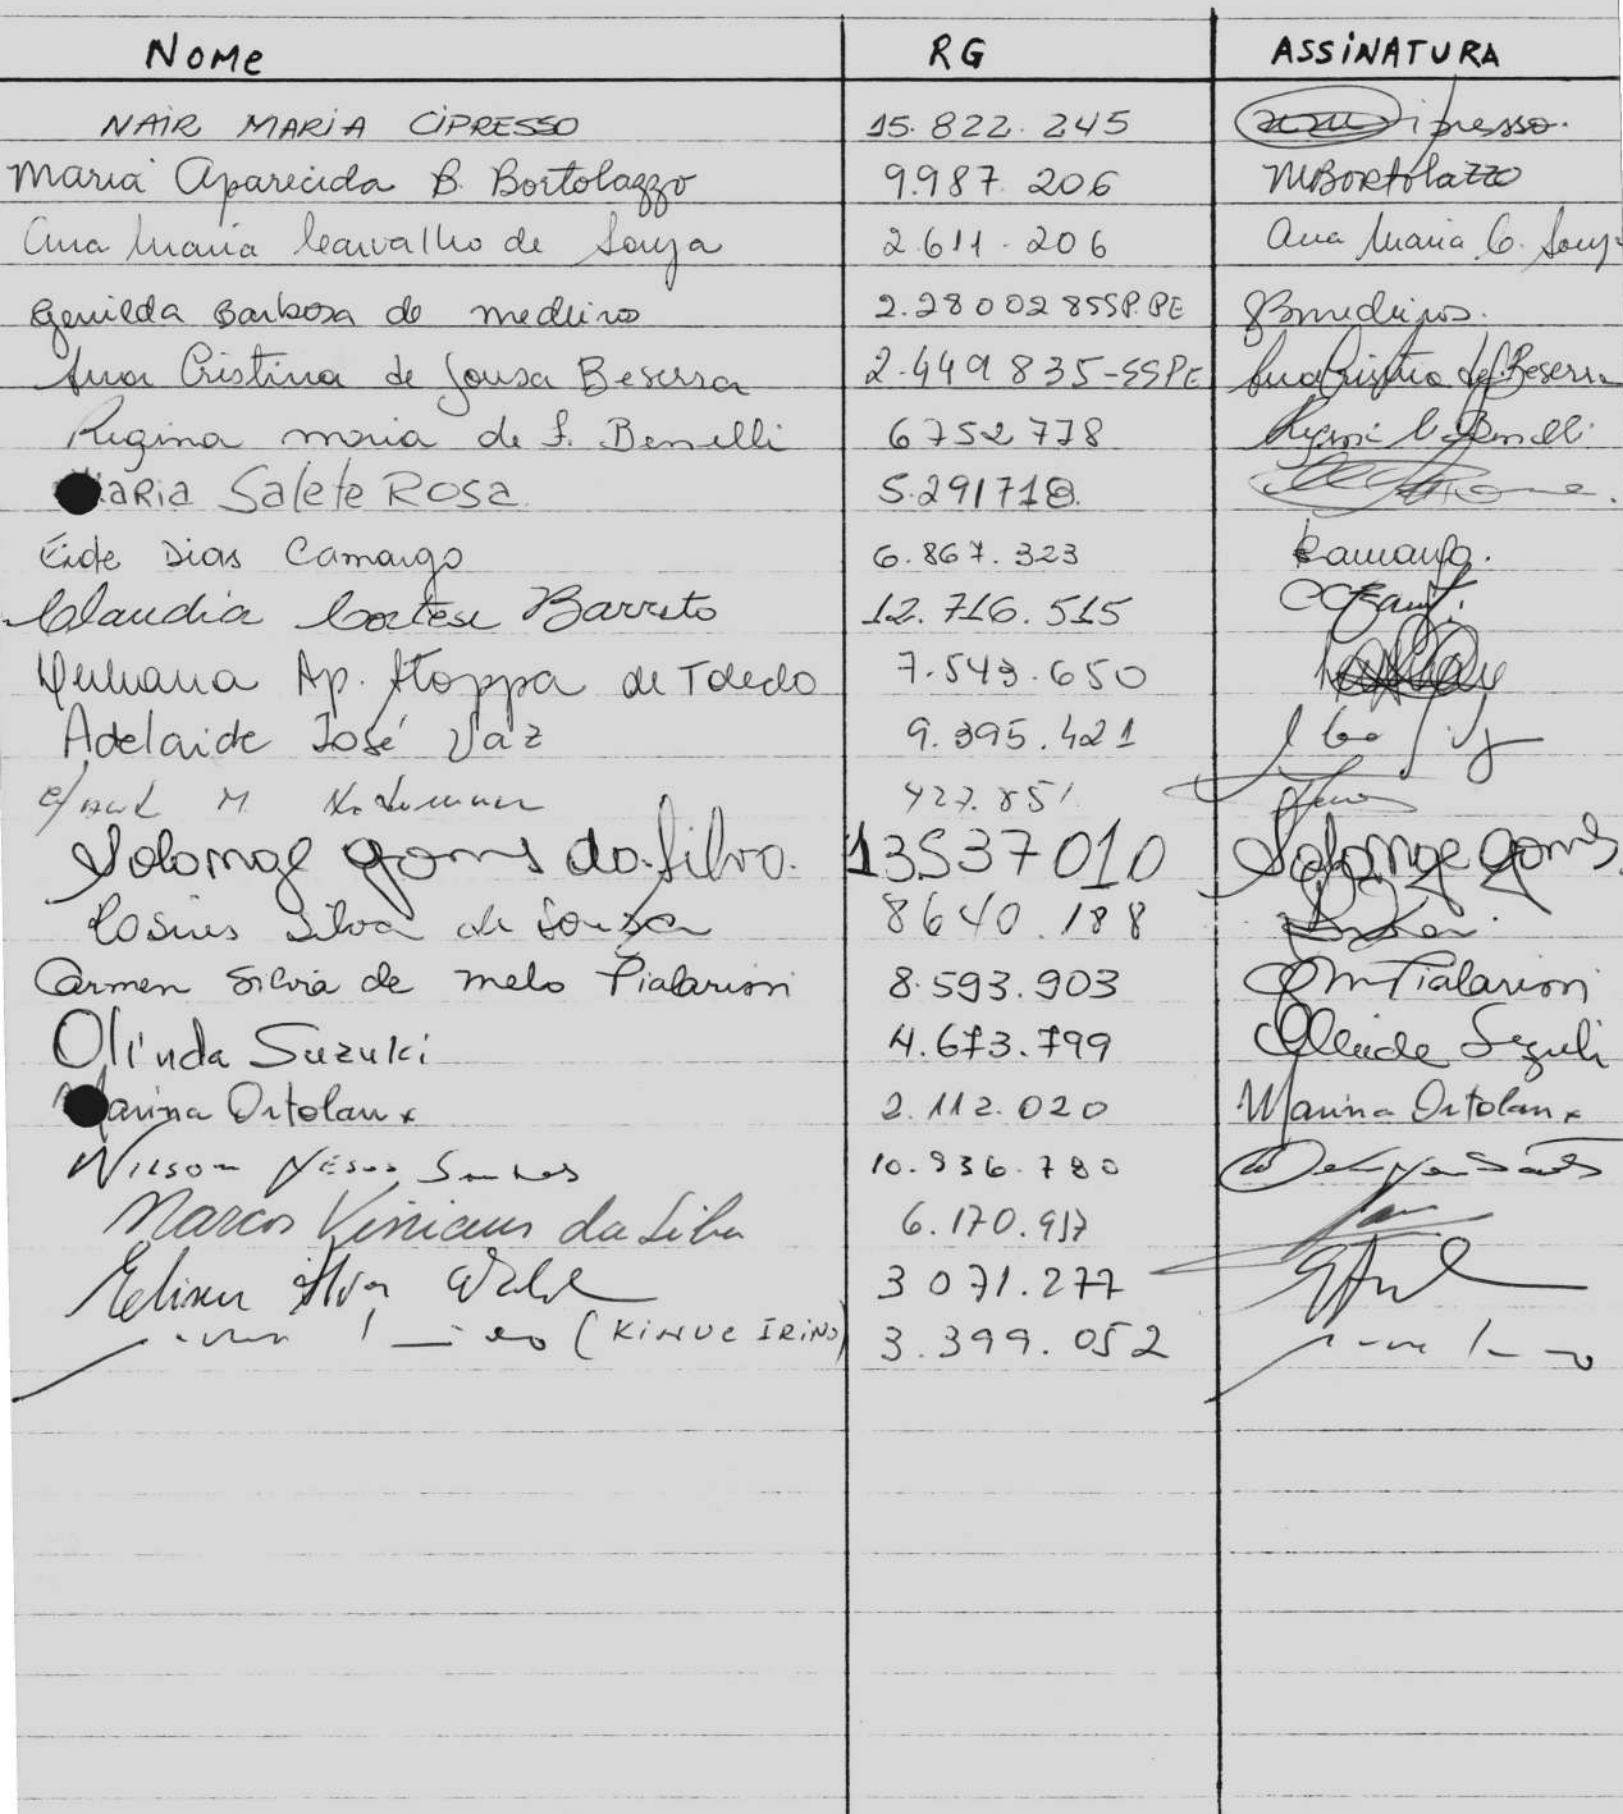 NOME RG ASSINATURA
NAIR MARIA CIPRESSO 15.822.245 Cipresso.
Maria Aparecida B. Bortolazzo 9.987.206 MBortolazzo
Ana Maria Carvalho de Souza 2.611-206 Ana Maria C. Souza
Genilda Barbosa de medeiros 2.2800285SP.PE GBmedeiros.
Ana Cristina de Sousa Beserra 2.449835-SSPE Ana Cristina de S. Beserra
Regina maria de F. Benelli 6752778 Benelli
aria Salete Rosa 5.291718
Eide Dias Camargo 6.867.323 Camargo.
Claudia Cortese Barreto 12.716.515
Ap. Stoppa de Toledo 7.543.650
Adelaide José Vaz 9.395.421
M. 427.851
Solange gomes da Silva. 13537010 Solange gomes
Silva de Sousa 8640.188
Carmen Silvia de melo Pialarissi 8.593.903 CSmPialarissi
Olinda Suzuki 4.673.799 Olinda Suzuki
arina Ortolan 2.112.020 Marina Ortolan
Wilson Santos 10.936.780 Santos
Marcos Vinicius da Silva 6.170.917
3071.277
(KINUE IRINO) 3.399.052